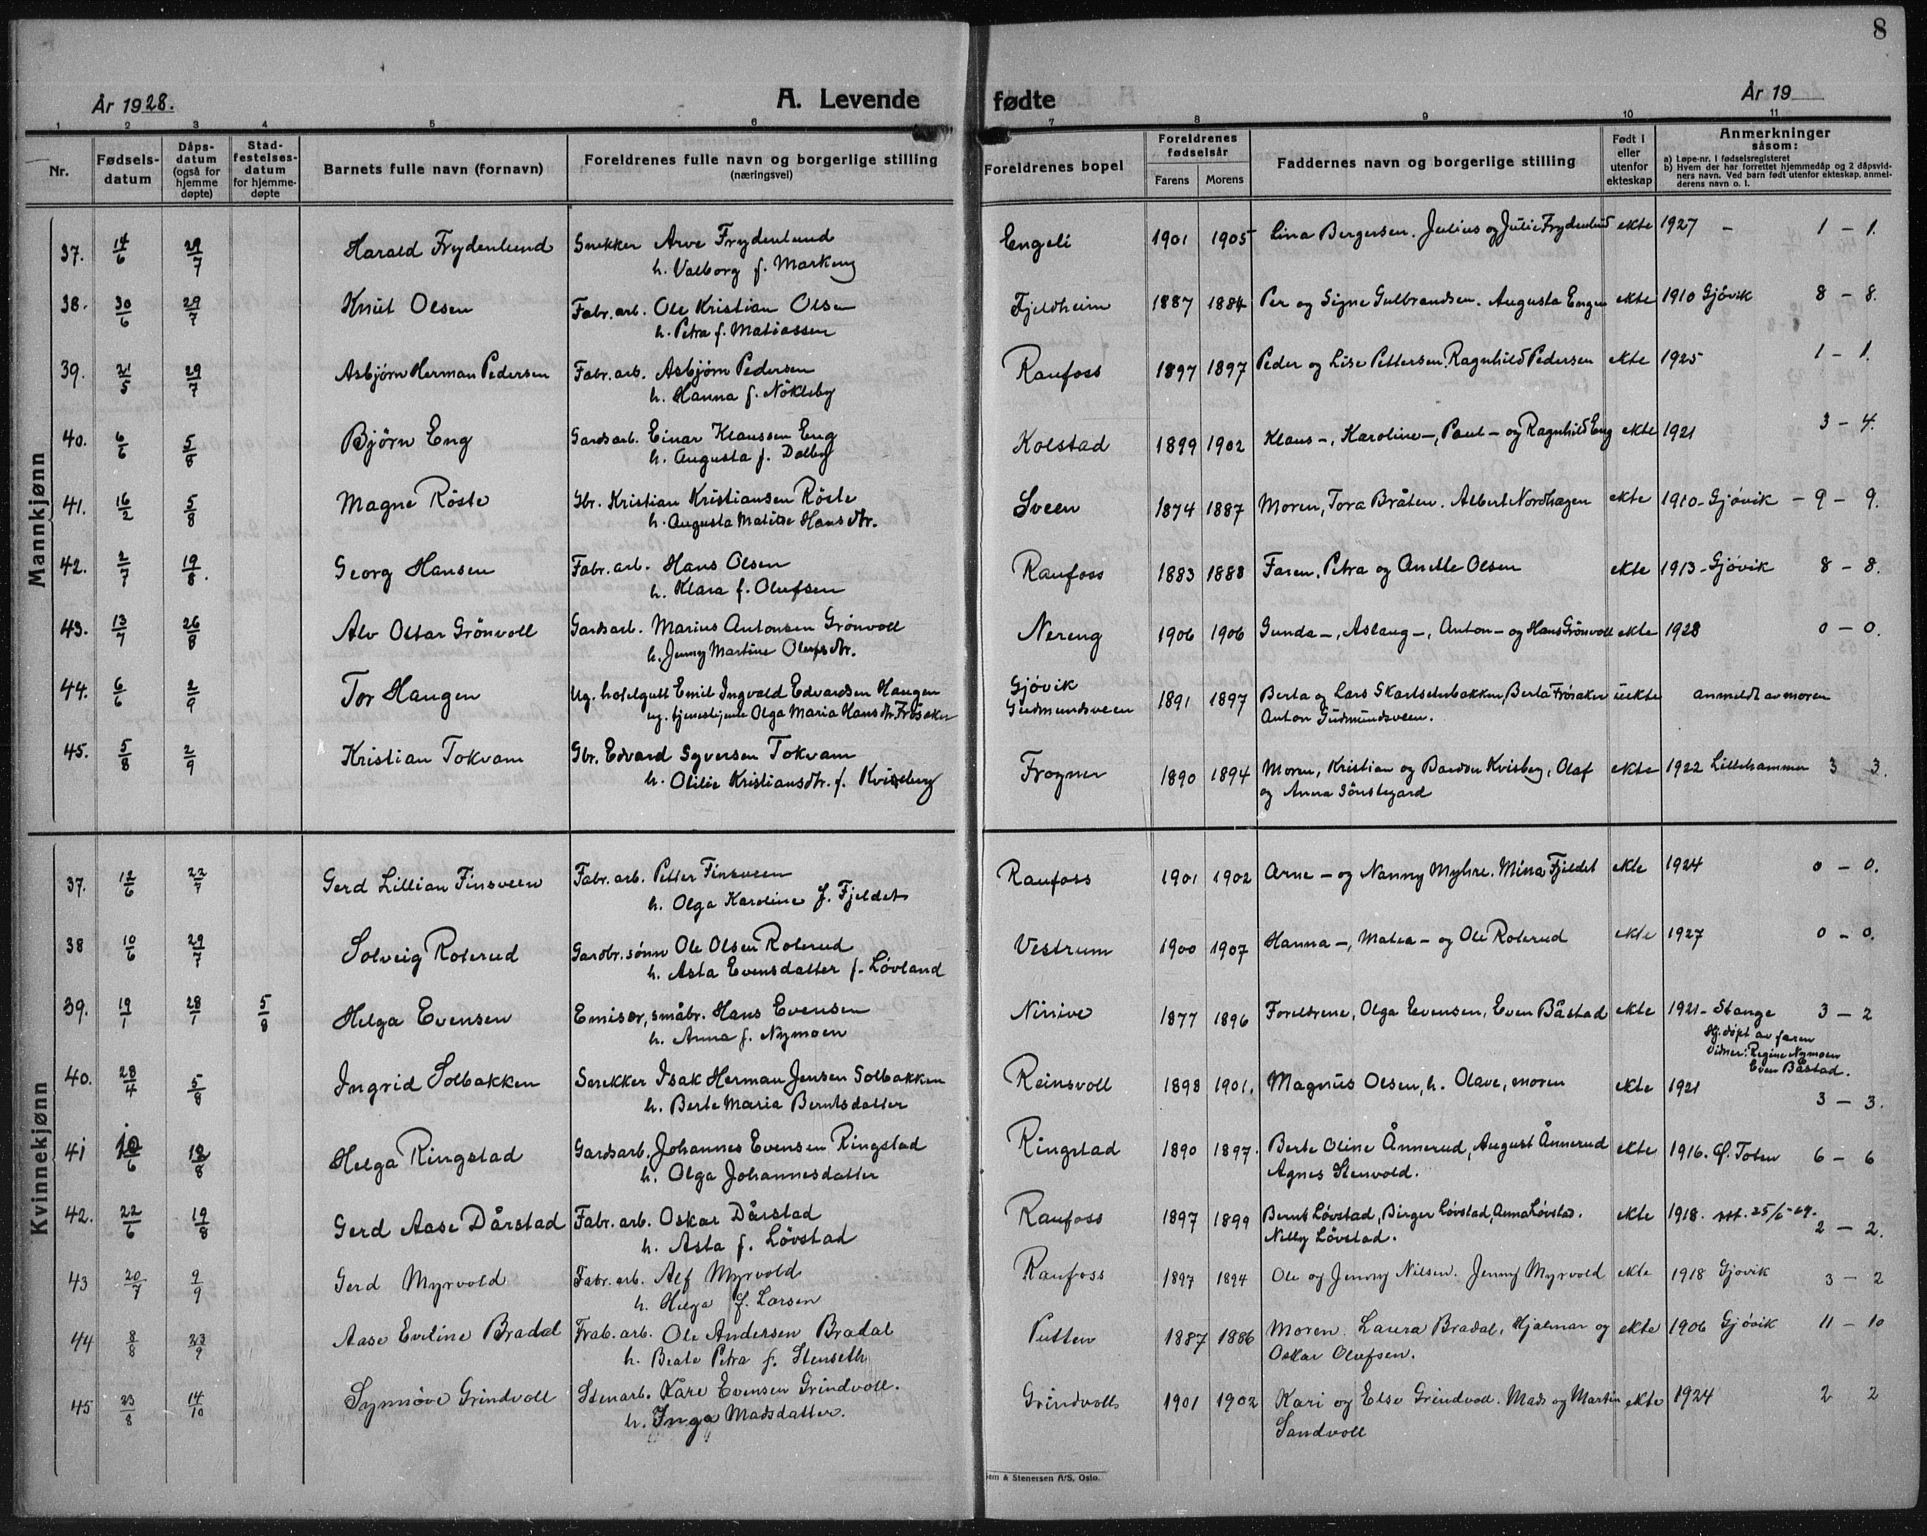 8
År 1928.
A. Levende fødte
År 19
1 2 3 4 5 6 7 8 9 10 11
Nr.
Fødsels-
datum
Dåps-
datum
(også for
hjemme
døpte)
Stad-
festelses-
datum
for hjemme-
døpte
Barnets fulle navn (fornavn)
Foreldrenes fulle navn og borgerlige stilling
(næringsvei)
Foreldrenes bopel
Foreldrenes
fødselsår
Farens Morens
Faddernes navn og borgerlige stilling
Født i
eller
utenfor
ekteskap
Anmerkninger
såsom:
a) Løpe-nr. i fødselsregisteret
b) Hvem der har forrettet hjemmedåp og 2 dåpsvid-
ners navn. Ved barn født utenfor ekteskap, anmel-
derens navn o. l.
Mannkjønn
37. 14/6 29/7 Harald Frydenlund Snekker Arve Frydenlund Engeli 1901 1905 Lina Bergersen. Julius og Julie Frydenlund ekte 1927 - 1 - 1.
h. Valborg f. Markeng
38. 30/6 29/7 Knut Olsen Fabr. arb. Ole Kristian Olsen Fjeldheim 1887 1884 Per og Signe Gulbrandsen. Augusta Engen ekte 1910 Gjövik 8 - 8.
h. Petra f. Matiassen
39. 21/5 29/7 Asbjørn Herman Pedersen Fabr. arb. Asbjørn Pedersen Raufoss 1897 1897 Peder og Lise Pettersen, Ragnhild Pedersen ekte 1925 1 - 1.
h. Hanna f. Nökleby
40. 6/6 5/8 Bjørn Eng Gardsarb. Einar Klaussen Eng Kolstad 1899 1902 Klaus -, Karoline -, Paul - og Ragnhild Eng ekte 1921 3 - 4.
h. Augusta f. Dalby
41. 16/2 5/8 Magne Röste Gbr. Kristian Kristiansen Röste Sveen 1874 1887 Moren, Tora Bråten. Albert Nordhagen ekte 1910 - Gjøvik - 9 - 9.
h. Augusta Matilde Hansdtr.
42. 2/7 19/8. Georg Hansen Fabr. arb. Hans Olsen Raufoss 1883 1888 Faren, Petra og Anette Olsen ekte 1913 - Gjøvik 8 - 8.
h. Klara f. Olufsen
43. 13/7 26/8 Alv Ottar Grönvoll Gardsarb. Marius Antonsen Grönvoll Nereng 1906 1906 Gunda -, Aslaug -, Anton - og Hans Grönvoll ekte 1928 0 - 0.
h. Jenny Martine Olufsdtr.
44. 6/6 2/9 Tor Haugen Ug. hotelgutt Emil Ingvald Edvardsen Haugen Gjøvik 1891 1897 Berta og Lars Skartseterbakken, Berta Frösaker uekte anmeldt av moren
ug. tjenestejente Olga Maria Hansdtr. Frösaker Gudmundsveen Anton Gudmundsveen.
45. 5/8 2/9 Kristian Tokvam Gbr. Edvard Syversen Tokvam Frogner 1890 1894 Moren, Kristian og Kvisberg, Olaf ekte 1922 Lillehammer 3 3.
h. Otilie Kristiansdtr. f. Kvisberg og Anna Sönstegard
Kvinnekjønn
37. 12/6 22/7 Gerd Lillian Finsveen Fabr. arb. Petter Finsveen Raufoss 1901 1902 Arne - og Nanny Myhre. Mina Fjeldet ekte 1924 0 - 0.
h. Olga Karoline f. Fjeldet
38 10/6 29/7 Solveig Roterud Gardbr. sönn Ole Olsen Roterud Vestrum 1900 1907 Hanna -, Matea - og Ole Roterud ekte 1927 0 - 0.
h. Asta Evensdatter f. Løvland
39. 19/1 28/1 5/8 Helga Evensen Emisær, småbr. Hans Evensen Ninive 1877 1896 Foreldrene, Olga Evensen, Even Båstad ekte 1921 - Stange 3 - 2
h. Anna f. Nymoen Hj. döpt av faren
Vidner: Regine Nymoen
Even Båstad.
40. 28/4 5/8 Ingrid Solbakken Snekker Isak Herman Jensen Solbakken Reinsvoll 1898 1901. Magnus Olsen, h. Olave, moren ekte 1921 3 - 3.
h. Berte Maria Berntsdatter
41 10/6 12/8 Helga Ringstad Gardsarb. Johannes Evensen Ringstad Ringstad 1890 1897. Berte Oline Ånnerud, August Ånnerud ekte 1916. Ø. Toten 6 - 6
h. Olga Johannesdatter Agnes Stenvold.
42. 22/6 19/8 Gerd Aase Dårstad Fabr. arb. Oskar Dårstad Raufoss 1897 1899 Bernt Løvstad, Birger Løvstad, Anna Løvstad. ekte 1918. 25/6-  2 - 2.
h. Asta f. Løvstad Nelly Løvstad.
43 20/7 9/9 Gerd Myrvold Fabr. arb. Alf Myrvold Raufoss 1897 1894 Ole og Jenny Nilsen. Jenny Myrvold ekte 1918 Gjøvik 3 - 2
h. Helga f. Larsen
44 8/8 23/9 Aase Eveline Bradal Frab. arb. Ole Andersen Bradal Putten 1887 1886 Moren. Laura Bradal, Hjalmar og ekte 1906 Gjøvik 11 - 10
h. Beate Petra f. Stenseth Oskar Olufsen.
45 23/8 14/10 Synnöve Grindvoll Stenarb. Kåre Evensen Grindvoll. Grindvoll 1901 1902 Kari og Else Grindvoll. Mads og Martin ekte 1924 2 2
h. Inga Madsdatter. Sandvoll
& Stenersen A/S, Oslo.